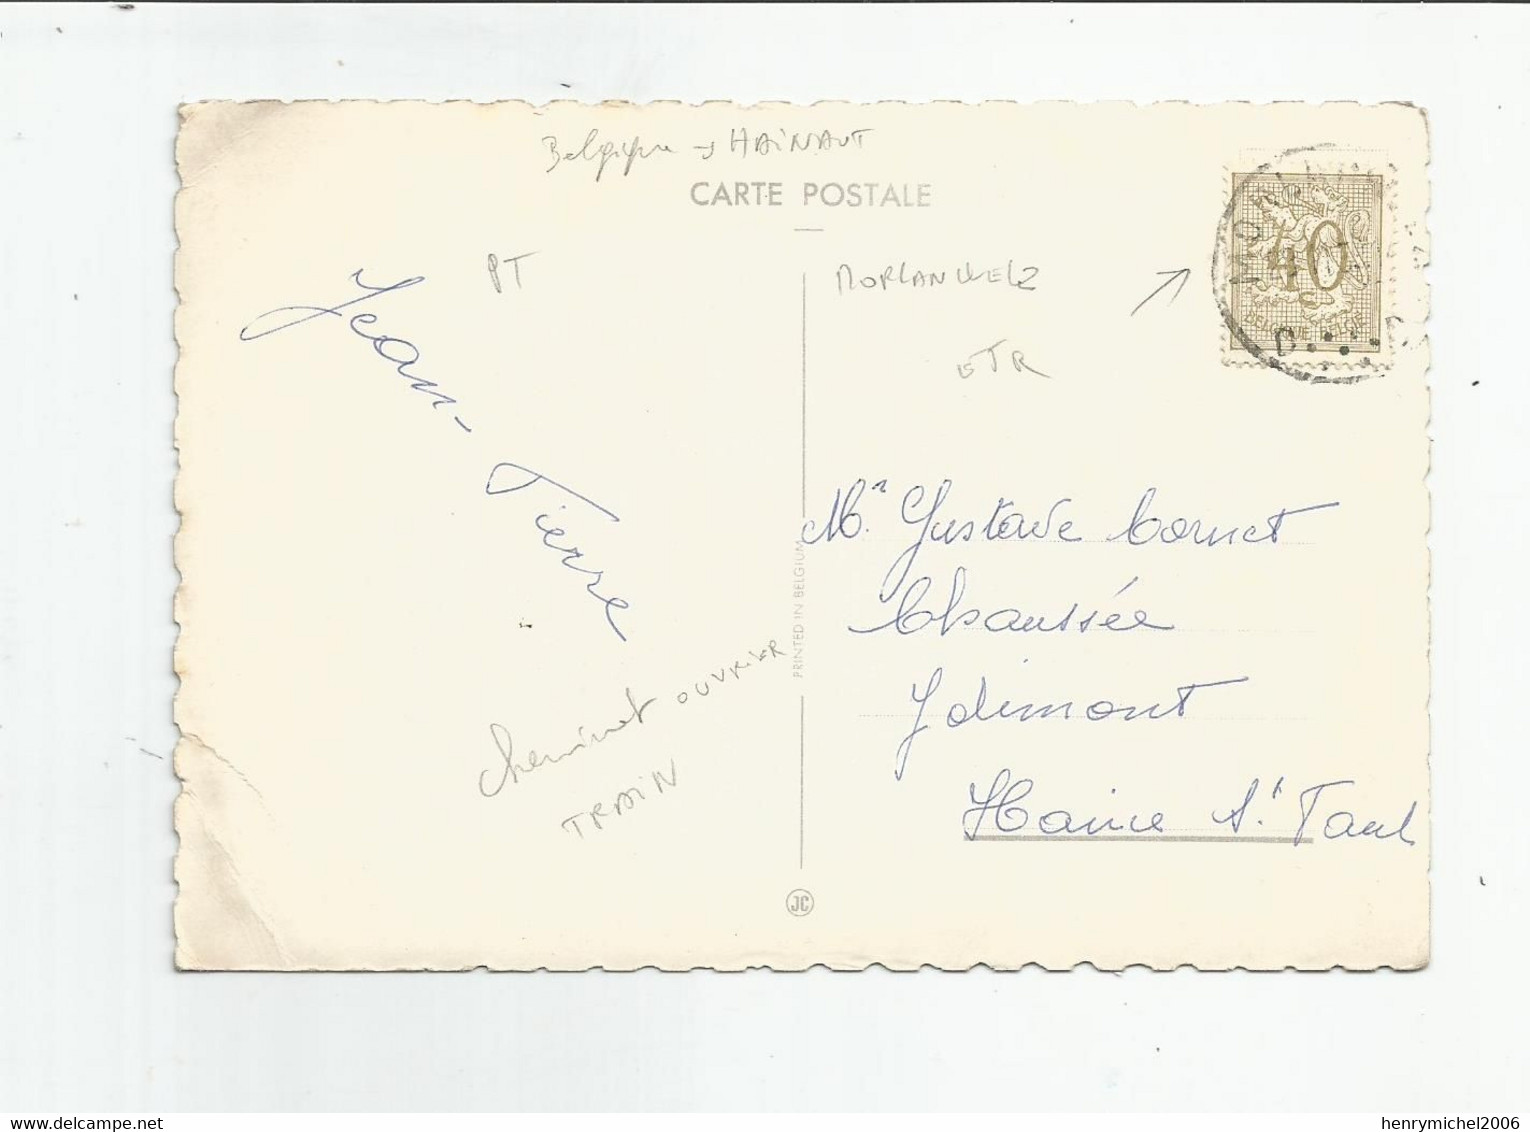 Belgique → HAINAUT
CARTE POSTALE
PT
MORLANWELZ
ETR
40
C
BELGIQUE BELGIË
D
Jean-Pierre
Mr Gustave Cornet
Chaussée
Jolimont
Haine St Paul
PRINTED IN BELGIUM
cheminot OUVRIER
TRAIN
JC
delcampe.net
henrymichel2006